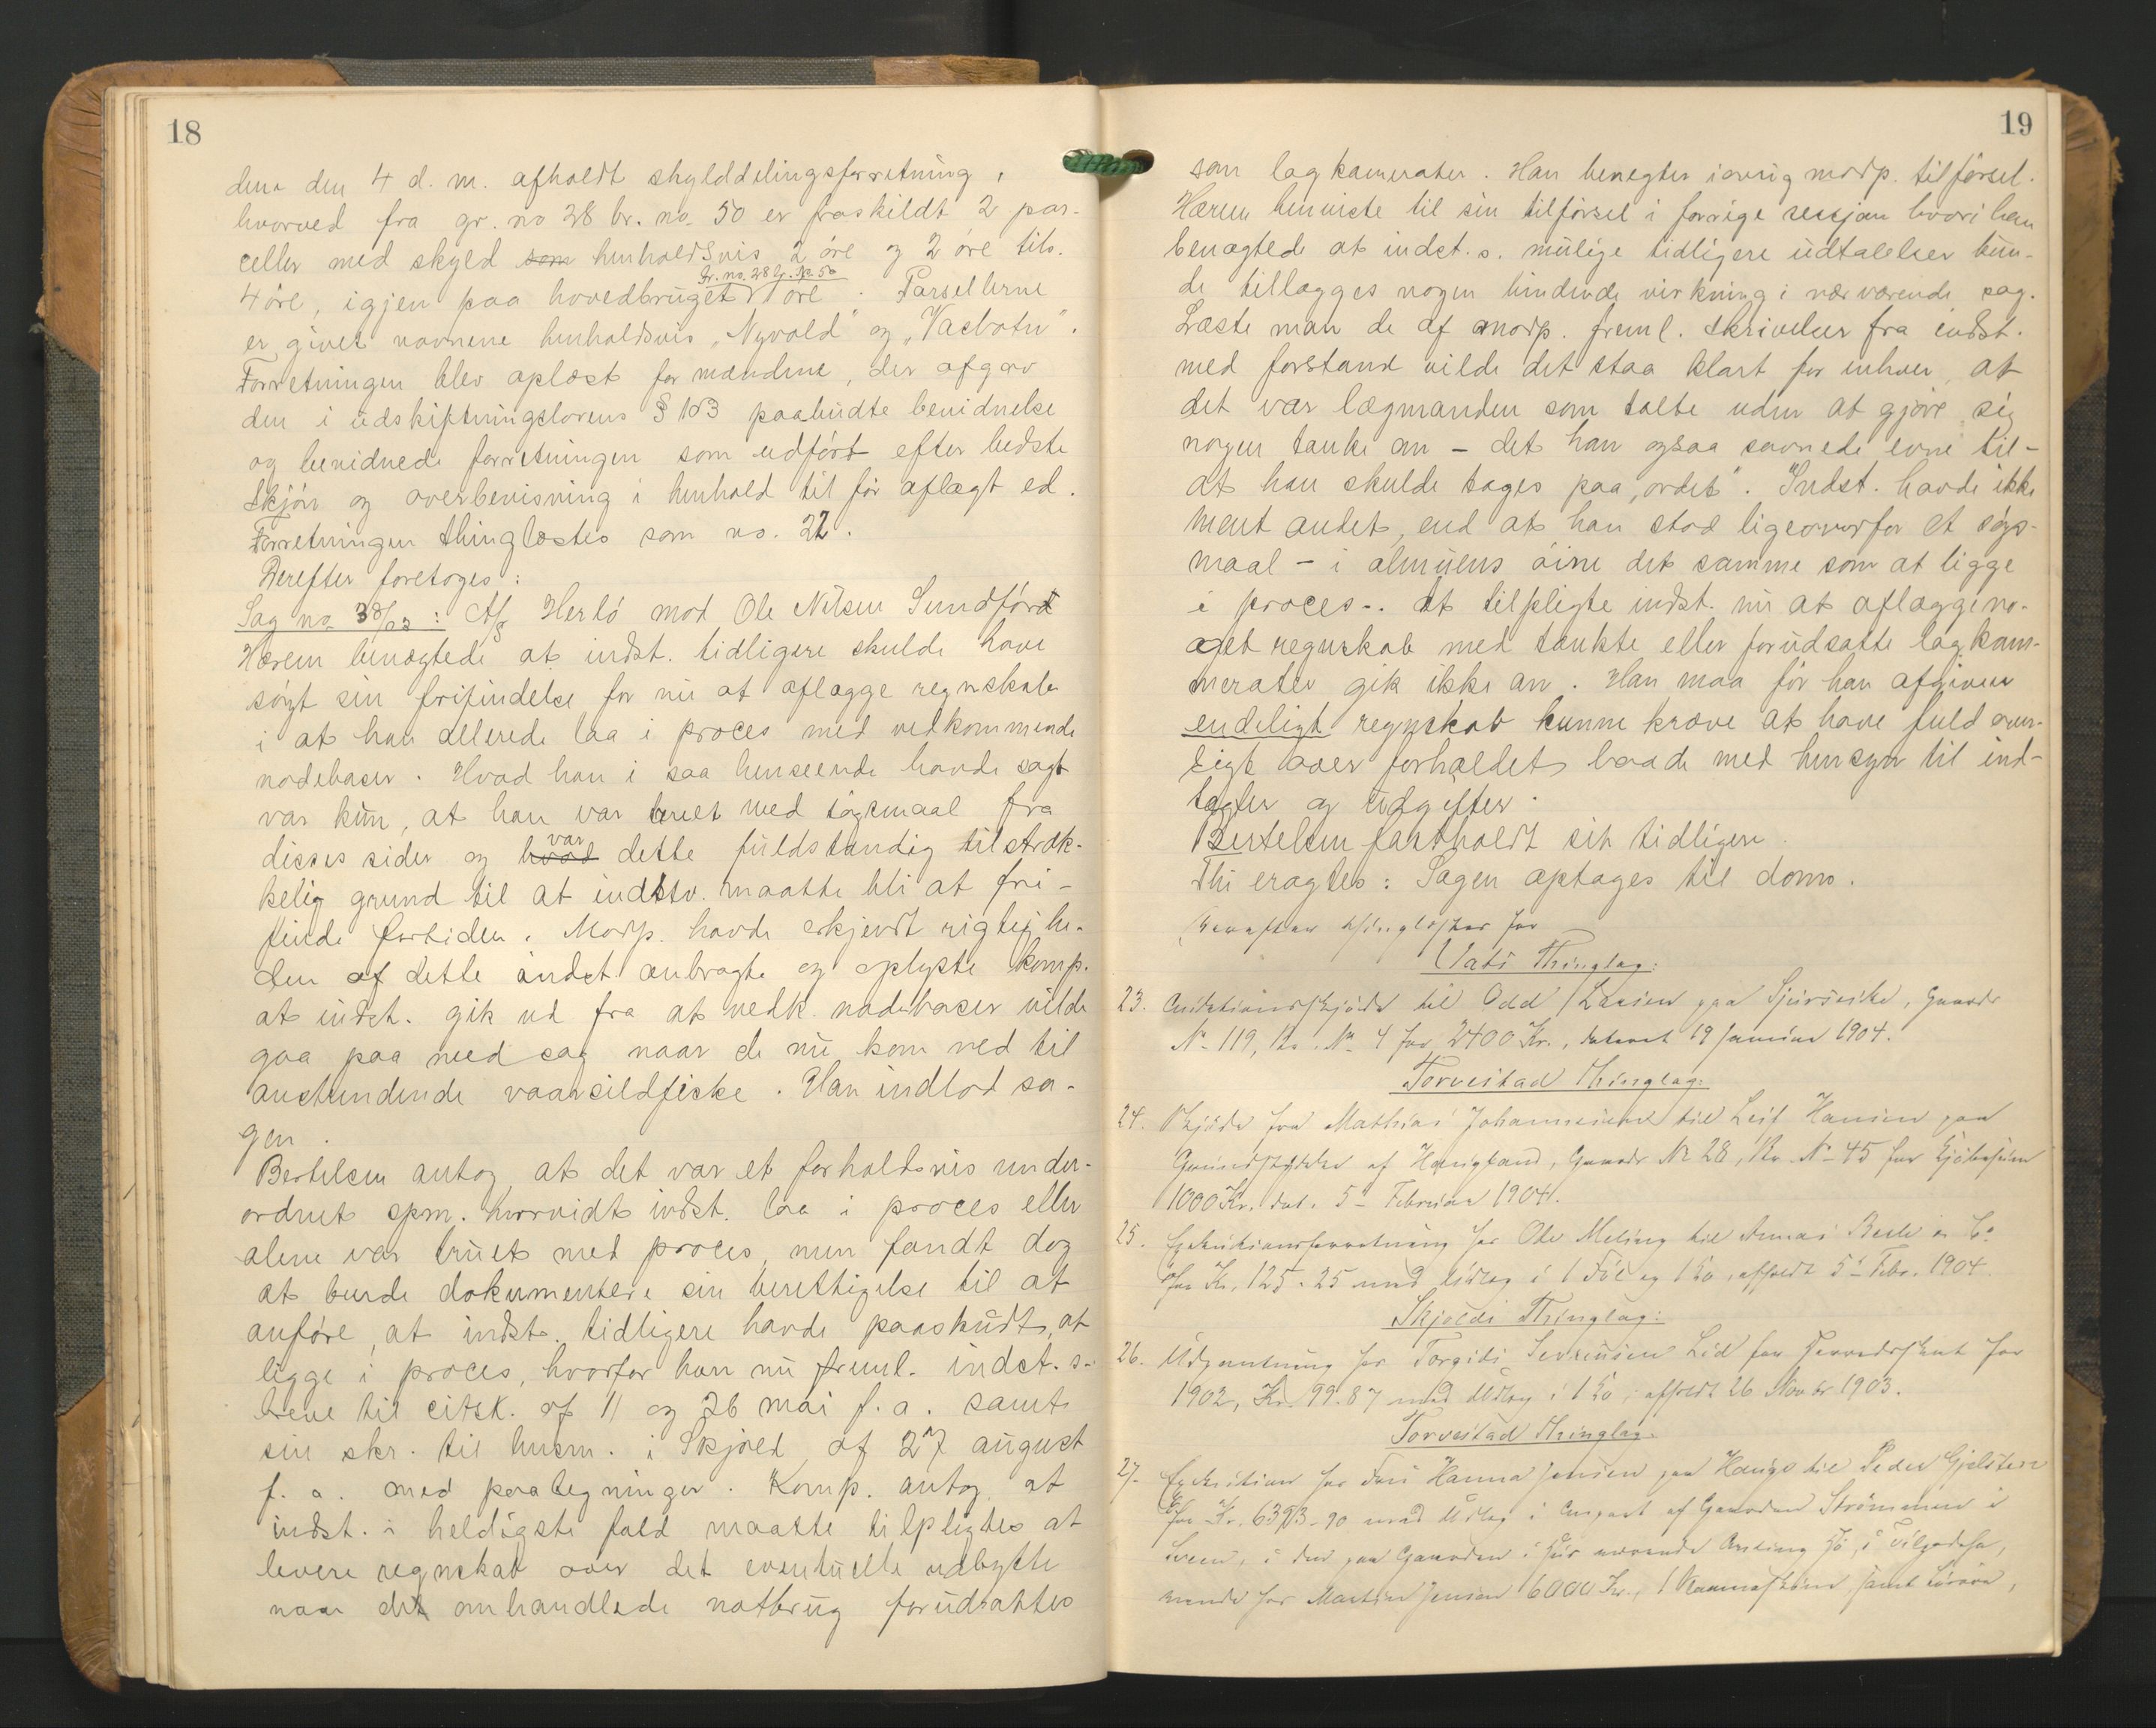 18
dens den 4 d. m. afholdt skylddelingsforretning,
hvorved fra gr. no 28 br. no. 50 er fraskildt 2 par-
celler med skyld som henholdsvis 2 øre og 2 øre tils.
gr. no. 28 br. no. 50
4 øre, igjen paa hovedbruget øre. Parsellerne
er givet navnene henholdsvis „Nyvold" og „Vaebotn".
Forretningen blev oplæst for mændene, der afgav
den i udskiftningslovens § 103 paabudte bevidnelse
og bevidnede forretningen som udført efter bedste
skjøn og overbevisning i henhold til før aflagt ed.
Forretningen thinglæstes som no. 22.
Derefter foretoges:
Sag no 38/03: A/S Herlö mod Ole Nilsen Sundförd
Hærem benægtede at indst. tidligere skulde have
søgt sin frifindelse for nu at aflægge regnskab
i at han allerede laa i proces med vedkommende
nodebaser. Hvad han i saa henseende havde sagt
var kun, at han var truet med søgsmaal fra
disses sider og hvad var dette fuldstændig tilstræk-
kelig grund til at indstv. maatte bli at fri-
finde fortiden. Modp. havde erkjendt rigtighe-
den af dette indst. anbragte og oplyste komp.
at indst. gik ud fra at vedk. nodebaser vilde
gaa paa med sag naar de nu kom ned til
anstundende vaarsildfiske. Han indlod sa-
gen.
Bertelsen antog at det var et forholdsvis under-
ordnet spm. hvorvidt indst. laa i proces eller
alene var truet med proces, men fandt dog
at burde dokumentere sin berettigelse til at
anføre, at indst. tidligere havde paaskudt, at
ligge i proces, hvorfor han nu freml. indst. s.
breve til citsk. af 11 og 26 mai f. a. samt
sin skr. til husm. i Skjold af 27 august
f. a. med paategninger. Komp. antog at
indst. i heldigste fald maatte tilpligtes at
levere regnskab over det eventuelle udbytte
naar det omhandlede notbrug forudsattes
19
som lagkamerater. Han benegter iøvrig modp. tilførsel.
Hærem henviste til sin tilførsel i forrige session hvori han
benægtede at indst. s. mulige tidligere udtalelser kun-
de tillægges nogen bindende virkning i nærværende sag.
Læste man de af modp. freml. skrivelser fra indst.
med forstand vilde det staa klart for enhver, at
det var lægmanden som talte uden at gjøre sig
nogen tanke om – det han ogsaa savnede evne til –
at han skulde tages paa „ordet". Indst. havde ikke
ment andet, end at han stod ligeoverfor et søgs-
maal – i almuens øine det samme som at ligge
i proces –. At tilpligte indst. nu at aflægge no-
get regnskab med tænkte eller forudsatte lagkam-
merater gik ikke an. Han maa før han afgiver
endeligt regnskab kunne kræve at have fuld over-
sigt over forholdet baade med hensyn til ind-
tægter og udgifter.
Bertelsen fastholdt sit tidligere.
Thi eragtes: Sagen optages til doms.
Derefter thinglæstes for
Vats Thinglag:
23. Auktionsskjøde til Odd Larsen paa Sjursvike, Gaards
No. 119, Br. No. 4 for 2400 Kr., dateret 19 Januar 1904.
Torvestad Thinglag:
24. Skjøde fra Mathias Johannessen til Leif Hansen paa
Grundstykke af Haugland, Gaards No. 28, Br. No. 45 for Kjøbesum
1000 Kr. dat. 5 Februar 1904.
25. Exekutionsforretning for Ole Meling til Aamas Besle & Co
for Kr. 125.25 med Udlæg i 1 Føl og 1 Ko, afholdt 5 Febr. 1904.
Skjolds Thinglag:
26. Udpantning hos Torgils Severinsen Lid for Herredsskat for
1902, Kr. 99.87 med Udlæg i 1 Ko, afholdt 26 Novbr 1903.
Torvestad Thinglag:
27. Exekution hos Fru Hanna Jensen paa Hauge til Peder Gjelsten
for Kr. 6393-90 med Udlæg i Anpart af Gaarden Strömmen i
Sveen, i den paa Gaarden i Hus værende
for Martin Jensen 6000 Kr., 1 samt